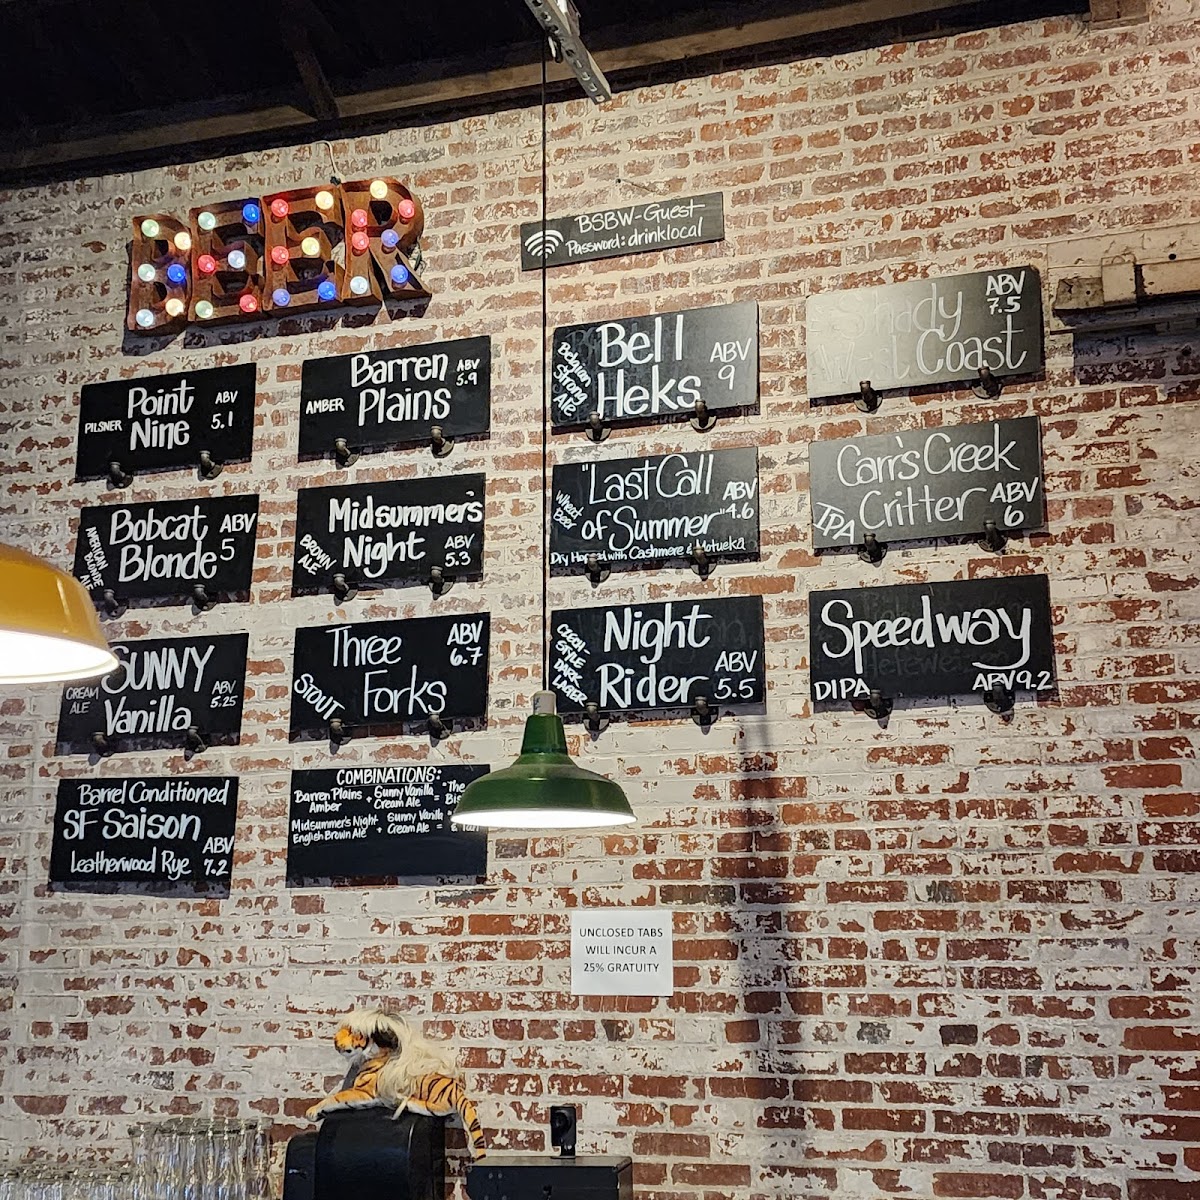 BEER
BSBW-Guest
Password: drinklocal
PILSNER
Point
Nine
ABV
5.1
AMBER
Barren
Plains
ABV
5.9
Belgian
Strong
Ale
Bell
Heks
ABV
9
Shady
West Coast
ABV
7.5
AMERICAN
BLONDE
ALE
Bobcat
Blonde
ABV
5
BROWN
ALE
Midsummer's
Night
ABV
5.3
Wheat
Beer
"Last Call
of Summer"
ABV
4.6
Dry Hopped with Cashmere & Motueka
IPA
Carr's Creek
Critter
ABV
6
CREAM
ALE
SUNNY
Vanilla
ABV
5.25
STOUT
Three
Forks
ABV
6.7
CZECH-
STYLE
DARK
LAGER
Night
Rider
ABV
5.5
Speedway
DIPA
ABV 9.2
Barrel Conditioned
SF Saison
Leatherwood Rye
ABV
7.2
COMBINATIONS:
Barren Plains + Sunny Vanilla = "The
Amber Cream Ale
Midsummer's Night + Sunny Vanilla =
English Brown Ale Cream Ale
UNCLOSED TABS
WILL INCUR A
25% GRATUITY